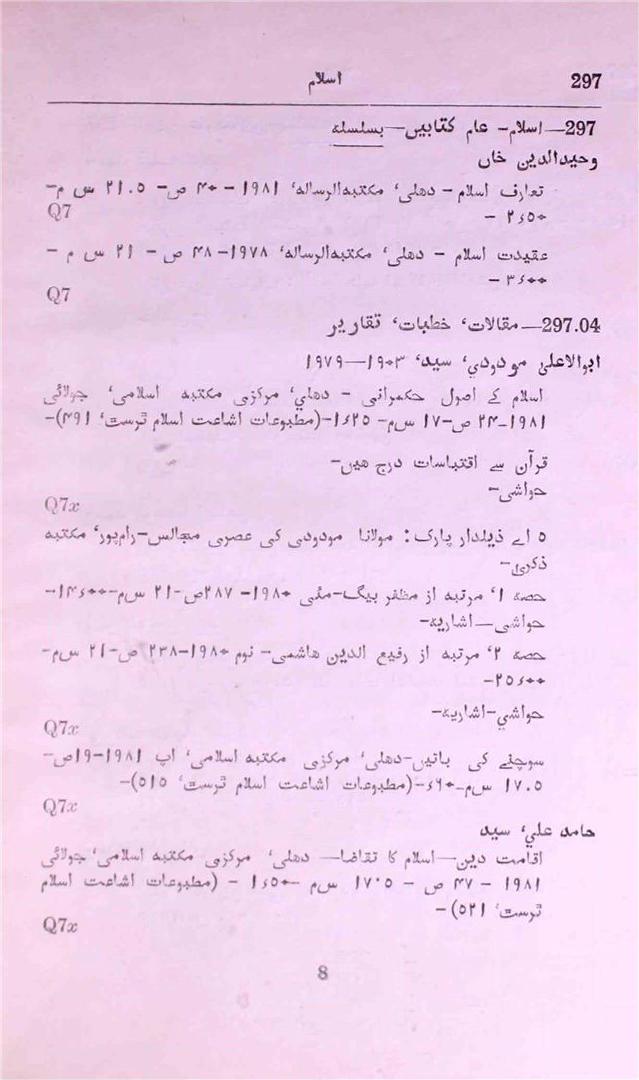 297 اسلام
297—اسلام- عام کتابیں—بسلسلہ
وحیدالدین خاں
تعارف اسلام - دهلی، مکتبہ‌الرسالہ، ۱۹۸۱ - ۴۰ ص- ۲۱.۵ س م-
۲ء۵۰ -
Q7
عقیدت اسلام - دهلی، مکتبہ‌الرسالہ، ۱۹۷۸- ۴۸ ص - ۲۱ س م -
۳ء۰۰ -
Q7
297.04—مقالات، خطبات، تقاریر
ابوالاعلیٰ مودودی، سید، ۱۹۰۳—۱۹۷۹
اسلام کے اصول حکمرانی - دهلی، مرکزی مکتبہ اسلامی، جولائی
۱۹۸۱-۲۴ ص-۱۷ س‌م- ۱ء۲۵-(مطبوعات اشاعت اسلام ٹرسٹ، ۴۹۱)-
قرآن سے اقتباسات درج هیں-
حواشی-
Q7x
۵ اے ذیلدار پارک: مولانا مودودی کی عصری مجالس-رام‌پور، مکتبہ
ذکریٰ-
حصہ ۱، مرتبہ از مظفر بیگ-مئی ۱۹۸۰- ۲۸۷ص-۲۱ س‌م-۱۴ء۰۰-
حواشی—اشاریہ-
حصہ ۲، مرتبہ از رفیع الدین هاشمی- نوم ۱۹۸۰-۲۳۸ ص-۲۱ س‌م-
۲۵ء۰۰-
حواشی-اشاریہ-
Q7x
سوچنے کی باتیں-دهلی، مرکزی مکتبہ اسلامی، اپ ۱۹۸۱-۱۹ص-
۱۷.۵ س‌م-ء۶۰-(مطبوعات اشاعت اسلام ٹرسٹ، ۵۱۵)-
Q7x
حامد علی، سید
اقامت دین—اسلام کا تقاضا— دهلی، مرکزی مکتبہ اسلامی، جولائی
۱۹۸۱ - ۴۷ ص - ۱۷.۵ س‌م -۱ء۵۰ - (مطبوعات اشاعت اسلام
ٹرسٹ، ۵۲۱)-
Q7x
8